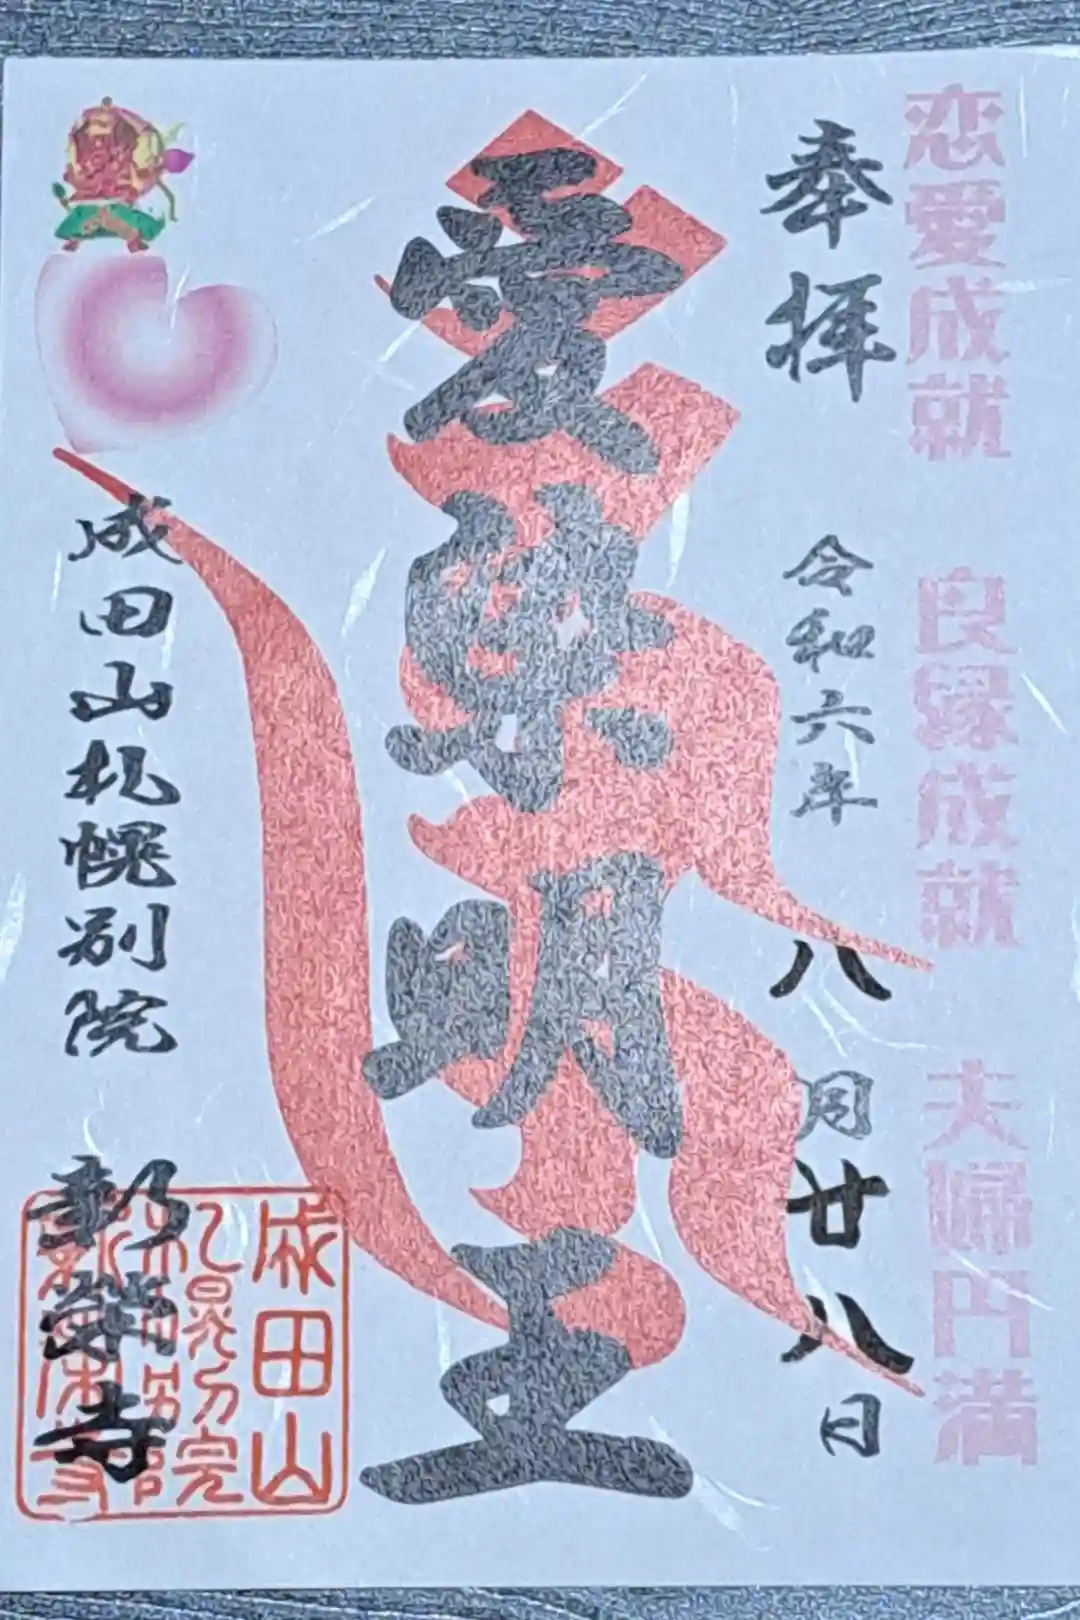 恋愛成就 良縁成就 夫婦円満
奉拝 令和六年八月廿八日
愛染明王
成田山札幌別院 新栄寺
成田山
札幌別院